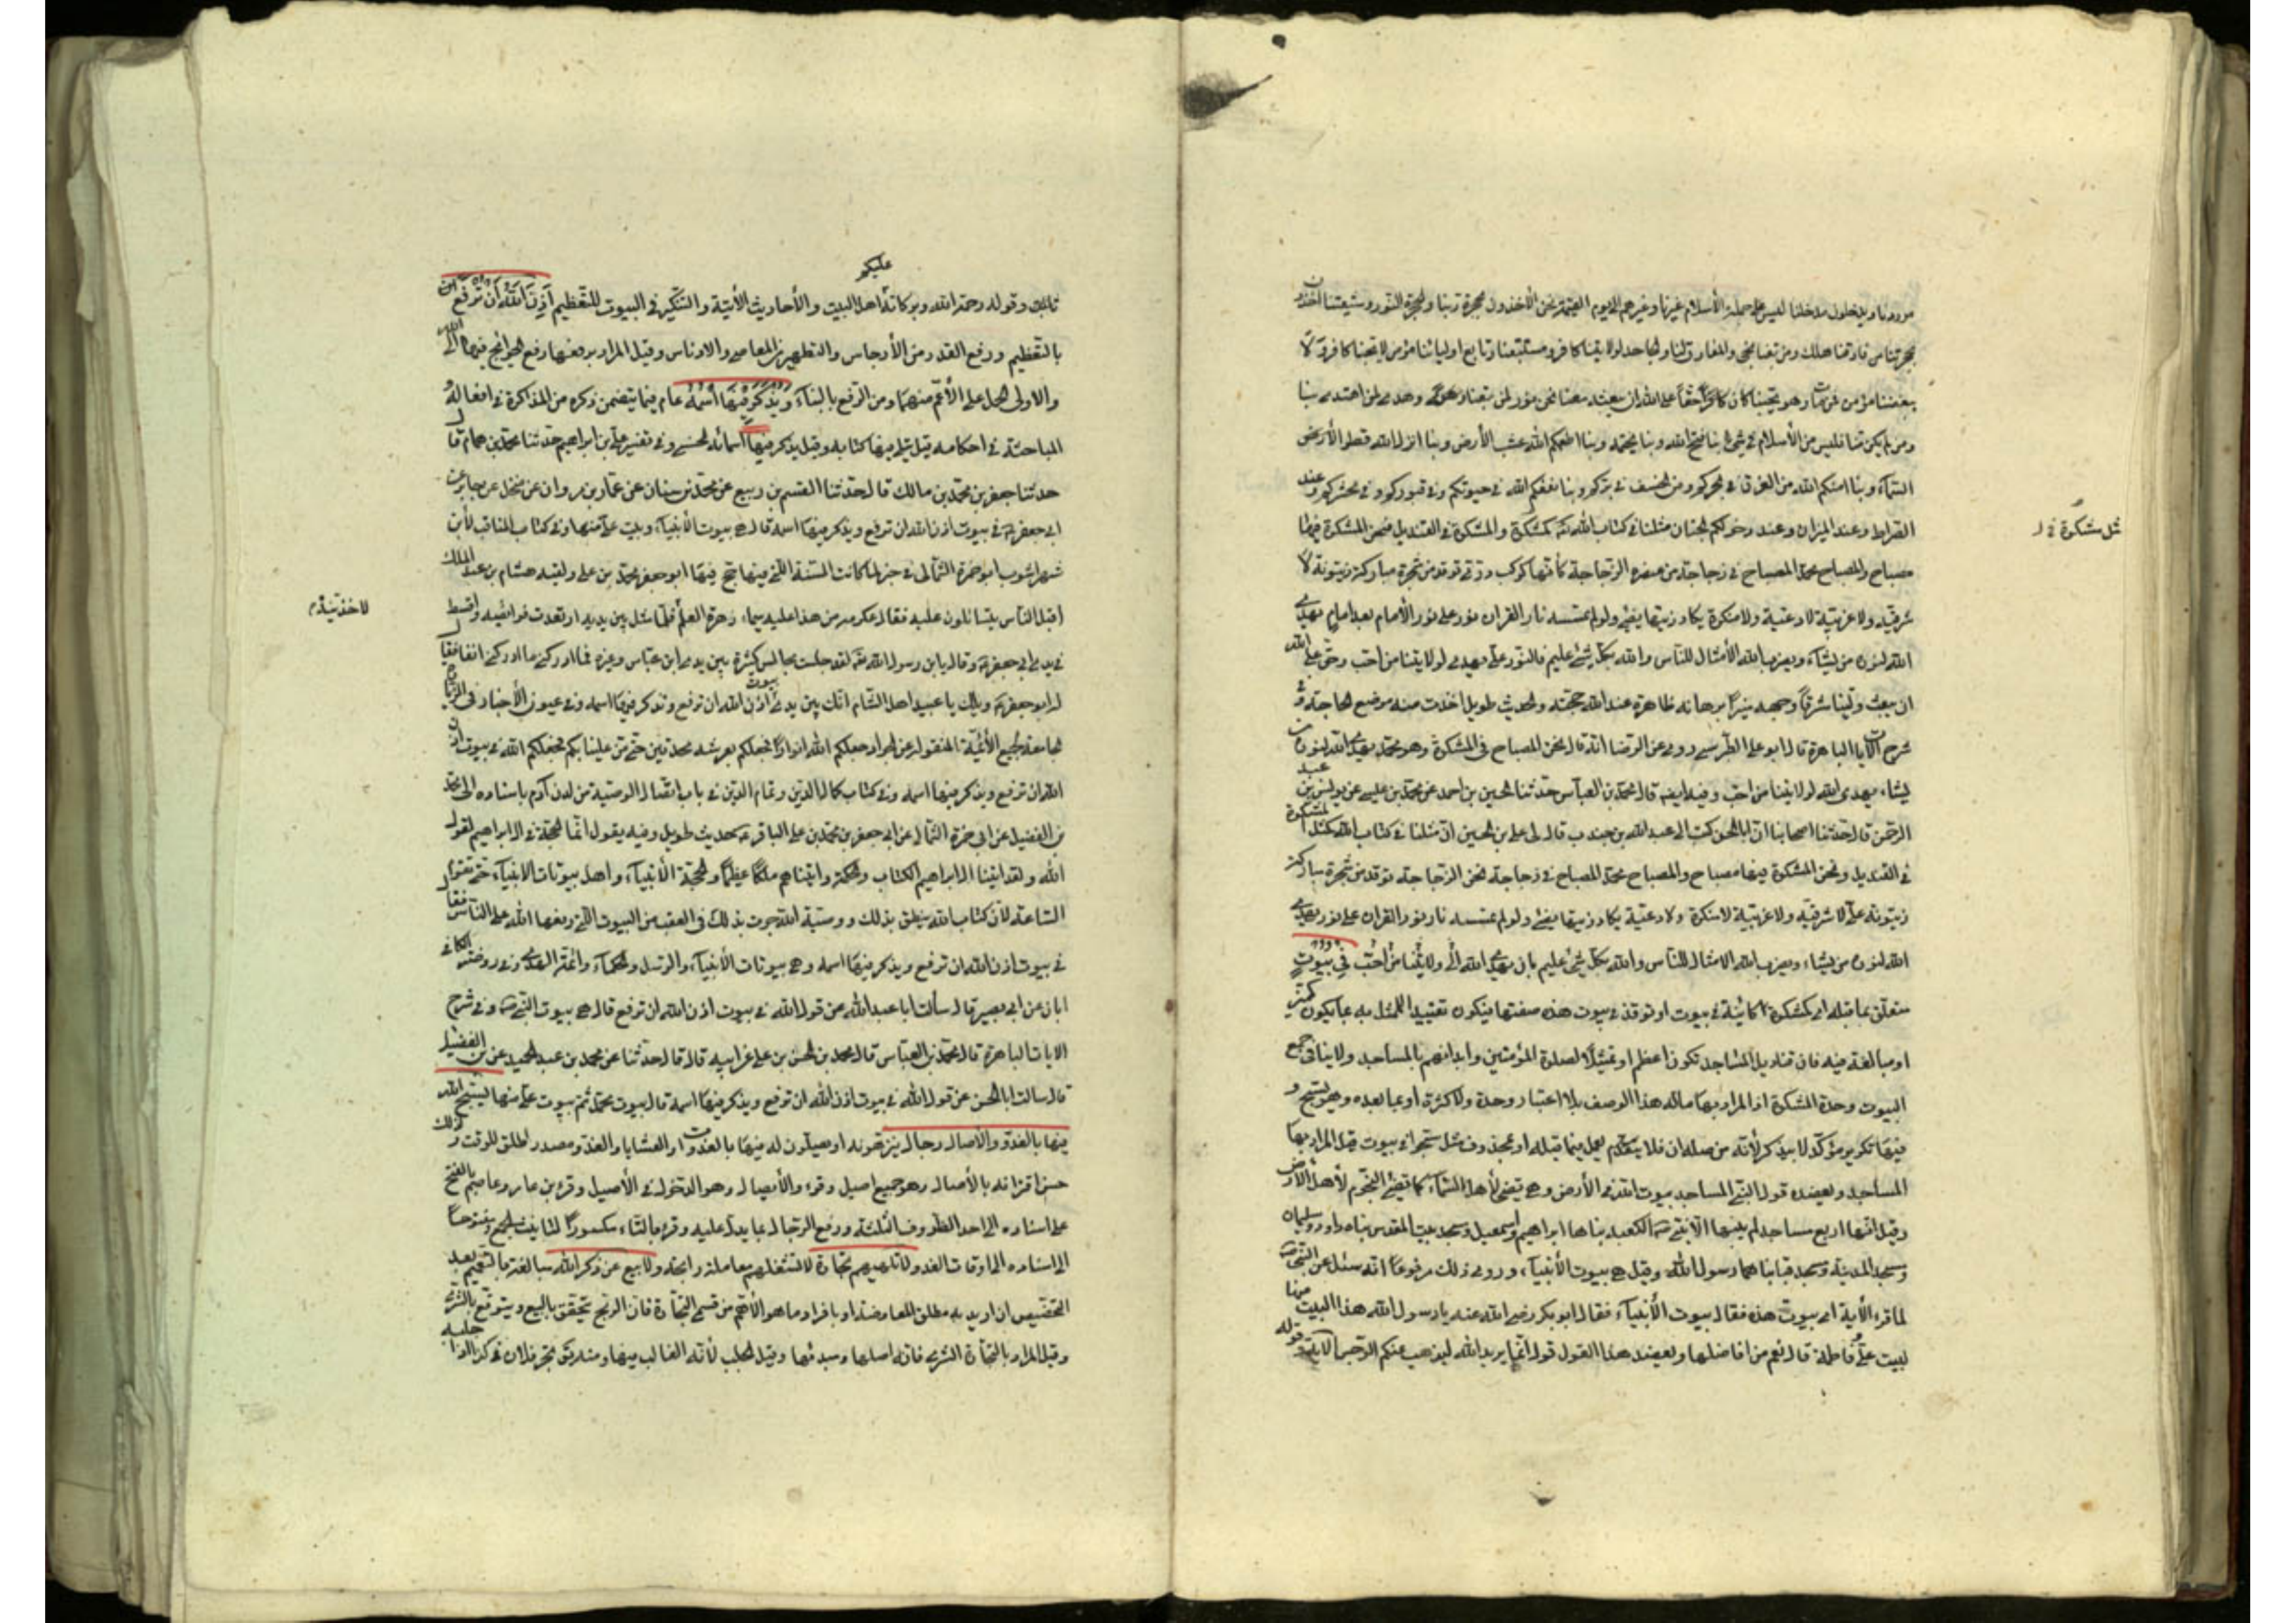 موردنا ويدخلون مدخلنا ليس على جملة الأسلام غيرنا وغيرهم الى يوم القيمة نحن الآخذون بحجزة نبينا ونبينا بحجزة النور وشيعتنا آخذون
بحجزتنا من فارقنا هلك ومن تبعنا نجى والمفارق لنا والجاحد لولايتنا كافر ومتبعنا وتابع اوليائنا مؤمن لا يحبنا كافر ولا
يبغضنا مؤمن من مات وهو يحبنا كان حقا على الله ان يبعثه معنا نحن نور لمن تبعنا وهدى لمن اهتدى بنا
ومن لم يكن منا فليس من الأسلام في شئ بنا فتح الله وبنا يختمه وبنا اطعمكم الله عشب الأرض وبنا انزل الله قطر الأرض
السماء وبنا امنكم الله من الغرق في بحركم ومن الخسف في بركم وبنا نفعكم الله في حيوتكم وفي قبوركم وفي محشركم وعند
الصراط وعند الميزان وعند دخولكم الجنان مثلنا في كتاب الله كمشكوة والمشكوة في القنديل فنحن المشكوة فيها
مثل مشكوة في
مصباح والمصباح محمد المصباح في زجاجة من عنصره الزجاجة كأنها كوكب درى توقد من شجرة مباركة زيتونة لا
شرقية ولا غربية لا دعية ولا منكرة يكاد زيتها يضئ ولو لم تمسسه نار القران نور على نور الأمام بعد امام يهدى
الله لنوره من يشاء ويضرب الله الأمثال للناس والله بكل شئ عليم فالنور على يهدى لولايتنا من احب وحق على الله
ان يبعث ولينا مشرقا وجهه منيرا برهانه ظاهرة عند الله حجته والحديث طويل اخذت منه موضع الحاجة وفي
شرح الآيات الباهرة قال ابو على الطبرسى روى عن الرضا انه قال نحن المصباح في المشكوة وهو محمد يهدى الله لنوره من
يشاء يهدى الله لولايتنا من احب وفيه ايضا قال محمد بن العباس حدثنا الحسين بن احمد عن محمد بن عيسى عن يونس بن عبد
الرحمن قال حدثنا اصحابنا ان ابا الحسن كتب الى عبد الله بن جندب قال قال لى على بن الحسين ان مثلنا في كتاب الله كمثل المشكوة
في القنديل ونحن المشكوة فيها مصباح والمصباح محمد المصباح في زجاجة نحن الزجاجة توقد من شجرة مباركة
زيتونة على لا شرقية ولا غربية لا منكرة ولا دعية يكاد زيتها يضئ ولو لم تمسسه نار نور القران على نور يهدى
الله لنوره من يشاء ويضرب الله الامثال للناس والله بكل شئ عليم بان يهدى الله الى ولايتنا من أحب في بيوت
متعلق بما قبله اى كمشكوة كائنة في بيوت او توقد في بيوت هذه صفتها فيكون تقييدا للمثل به بما يكون
او مبالغة فيه فان قناديل المساجد تكون اعظم او تمثيلا لصلوة المؤمنين وابدانهم بالمساجد ولا ينافى جمع
البيوت وحدة المشكوة اذ المراد بها ماله هذا الوصف بلا اعتبار وحدة ولا كثرة او بما بعده وهو يسبح و
فيها تكرير مؤكد لا بيذكر لأنه من صلة ان فلا يعمل فيما قبله او بمحذوف مثل سبحوا في بيوت قيل المراد بها
المساجد ويعضده قول النبي المساجد بيوت الله في الأرض وهى تضئ لأهل السماء كما تضئ النجوم لأهل الأرض
وقيل انها اربع مساجد لم يبنها الا نبى الكعبة بناها ابراهيم واسمعيل ومسجد بيت المقدس بناه داود وسليمان
ومسجد المدينة ومسجد قبا بناهما رسول الله وقيل هى بيوت الأنبياء وروى ذلك مرفوعا انه سئل عن النبي
لما قرء الأية اى بيوت هذه فقال بيوت الأنبياء فقال ابو بكر رضى الله عنه يا رسول الله هذا البيت منها
لبيت على وفاطمة قال نعم من افاضلها ويعضد هذا القول قوله انما يريد الله ليذهب عنكم الرجس الآية وقوله
عليكم
وقوله رحمة الله وبركاته اهل البيت والأحاديث الأتية والتنكير في البيوت للتعظيم أذن الله أن ترفع
بالتعظيم ورفع القدر من الأرجاس والتطهير من المعاصى والادناس وقيل المراد برفعها رفع الحوائج فيها الى الله
والاولى الحمل على الأعم منهما ومن الرفع بالبناء ويذكر فيها اسمه عام فيما يتضمن ذكره من المذاكرة في افعاله و
المباحثة في احكامه قيل يتلى فيها كتابه وقيل يذكر فيها اسمائه الحسنى وفي تفسير على بن ابراهيم حدثنا محمد بن همام قال
حدثنا جعفر بن محمد بن مالك قال حدثنا القسم بن ربيع عن محمد بن سنان عن عمار بن مروان عن منخل عن جابر عن
ابى جعفر في بيوت اذن الله ان ترفع ويذكر فيها اسمه قال هى بيوت الأنبياء وبيت على منها وفي كتاب المناقب لأبن
شهراشوب ابو حمزة الثمالى في خبر لما كانت السنة التى فيها حج فيها ابو جعفر محمد بن على ولقيه هشام بن عبد الملك
اقبل الناس يتسائلون عليه فقال عكرمه من هذا عليه سيماء زهرة العلم فلما مثل بين يديه ارتعدت فرائصه واسقط
لاخذيته
في يدى ابى جعفر وقال يابن رسول الله لقد جلست مجالس كثيرة بين يدى ابن عباس وغيره فما ادركنى ما ادركنى انفا فقال
له ابو جعفر ويلك يا عبيد اهل الشام انك بين يدى بيوت أذن الله ان ترفع ويذكر فيها اسمه وفي عيون الأخبار في الزيارة
الجامعة لجميع الأئمة المنقولة عن الجواد جعلكم الله انوارا فجعلكم بعرشه محدقين حتى من علينا بكم فجعلكم الله في بيوت اذن
الله ان ترفع ويذكر فيها اسمه وفي كتاب كمال الدين وتمام الدين في باب اتصال الوصية من لدن آدم باسناده الى محمد
بن الفضيل عن ابى حمزة الثمالى عن ابى جعفر بن محمد بن على الباقر حديث طويل وفيه يقول انما الحجة في آل ابراهيم لقول
الله ولقد اتينا آل ابراهيم الكتاب والحكمة واتيناهم ملكا عظيما والحجة الأنبياء واهل بيوتات الانبياء حتى تقوم
الساعة لان كتاب الله ينطق بذلك ووصية الله جرت بذلك في العقب من البيوت التى رفعها الله على الناس فقال
في بيوت اذن الله ان ترفع ويذكر فيها اسمه وهى بيوتات الأنبياء والرسل والحكماء وائمة الهدى وفي روضة الكافى
ابان عن ابى بصير قال سألت ابا عبد الله عن قول الله في بيوت اذن الله ان ترفع قال هى بيوت النبي وفي شرح
الايات الباهرة قال محمد بن العباس قال محمد بن الحسن بن على عن ابيه قال قال حدثنا عن محمد بن عبد الحميد عن بن الفضيل
قال سالت ابا الحسن عن قول الله في بيوت اذن الله ان ترفع ويذكر فيها اسمه قال بيوت محمد ثم بيوت على منها يسبح الله
فيها بالغدو والأصال رجال ينزهونه او يصلون له فيها بالغدوات والعشايا والغدو مصدر اطلق للوقت ولذلك
حسن اقترانه بالأصال وهو جمع اصيل وقرء والأيصال وهو الدخول في الأصيل وقرء بن عامر وعاصم بالفتح
على اسناده الى احد الظروف الثلثة ورفع الرجال بما يدل عليه وقرء بالتاء مكسورا لتانيث الجمع ومفتوحا
الى اسناده الى اوقات الغدو لا تلهيهم تجارة لا تشغلهم معاملة رابحة ولا بيع عن ذكر الله مبالغة بالتعميم بعد
التخصيص ان اريد به مطلق المعاوضة او بافراد ما هو الأهم من قسم التجارة فان الربح يتحقق بالبيع ويتوقع بالشرى
وقيل المراد بالتجارة الشرى فانه اصلها ومبدئها وقيل الجلب لأنه الغالب فيها ومنه يق تجر فلان في كذا اذا جلبه